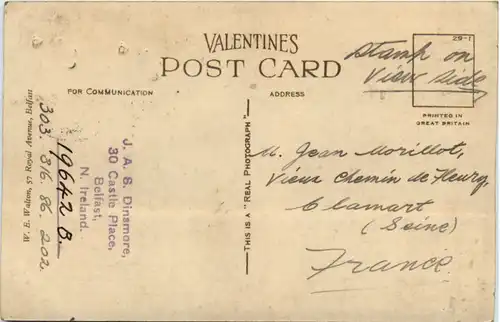 VALENTINES
POST CARD
FOR COMMUNICATION
ADDRESS
29-1
Stamp on
View side
PRINTED IN
GREAT BRITAIN
W. E. Walton, 57 Royal Avenue, Belfast
303. 316. 86. 202.
19642 B.
J. A. S. Dinsmore,
30 Castle Place,
Belfast,
N. Ireland.
THIS IS A "REAL PHOTOGRAPH"
M. Jean Morillot,
Vieux Chemin de Fleury,
Clamart
(Seine)
France